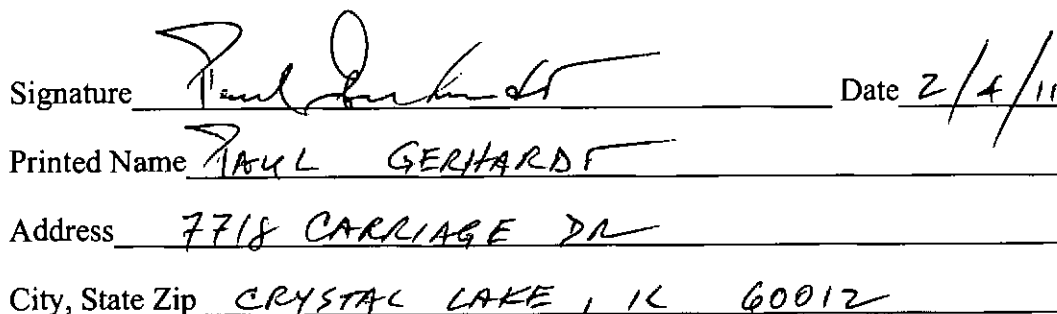 Signature Paul Gerhardt Date 2/4/11
Printed Name PAUL GERHARDT
Address 7718 CARRIAGE DR
City, State Zip CRYSTAL LAKE, IL 60012